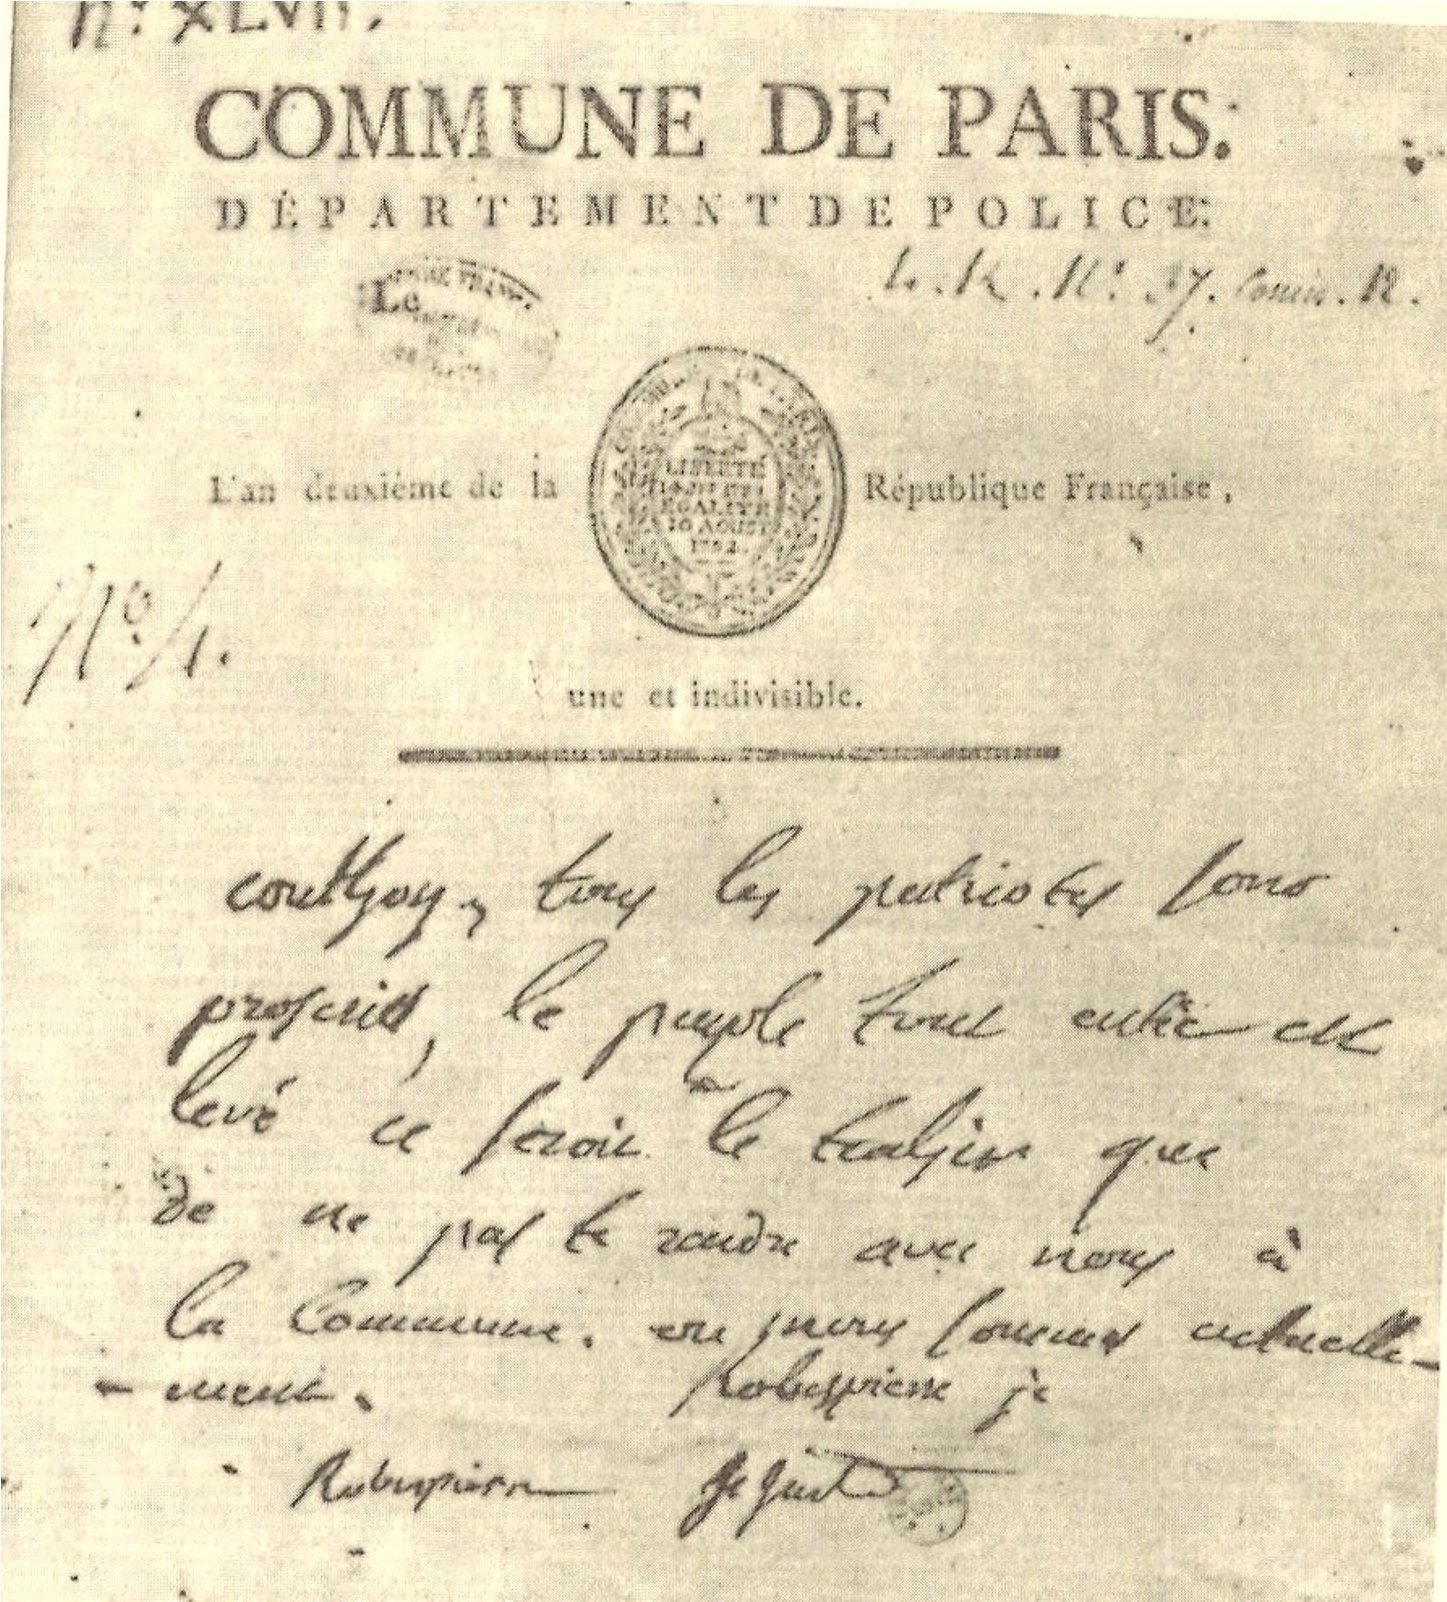 N.º XLVII.
COMMUNE DE PARIS.
DÉPARTEMENT DE POLICE.
Le
COMMUNE DE PARIS
LIBERTÉ
ÉGALITÉ
10 AOUST
1792.
L'an deuxième de la République Française,
Nº 1.
une et indivisible.
couthon, tous les patriotes sont
proscrits, le peuple tout entier est
levé ce seroit le trahir que
de ne pas te rendre avec nous à
la Commune. ou nous sommes actuelle-
- ment. Robespierre je
Robespierre St Just